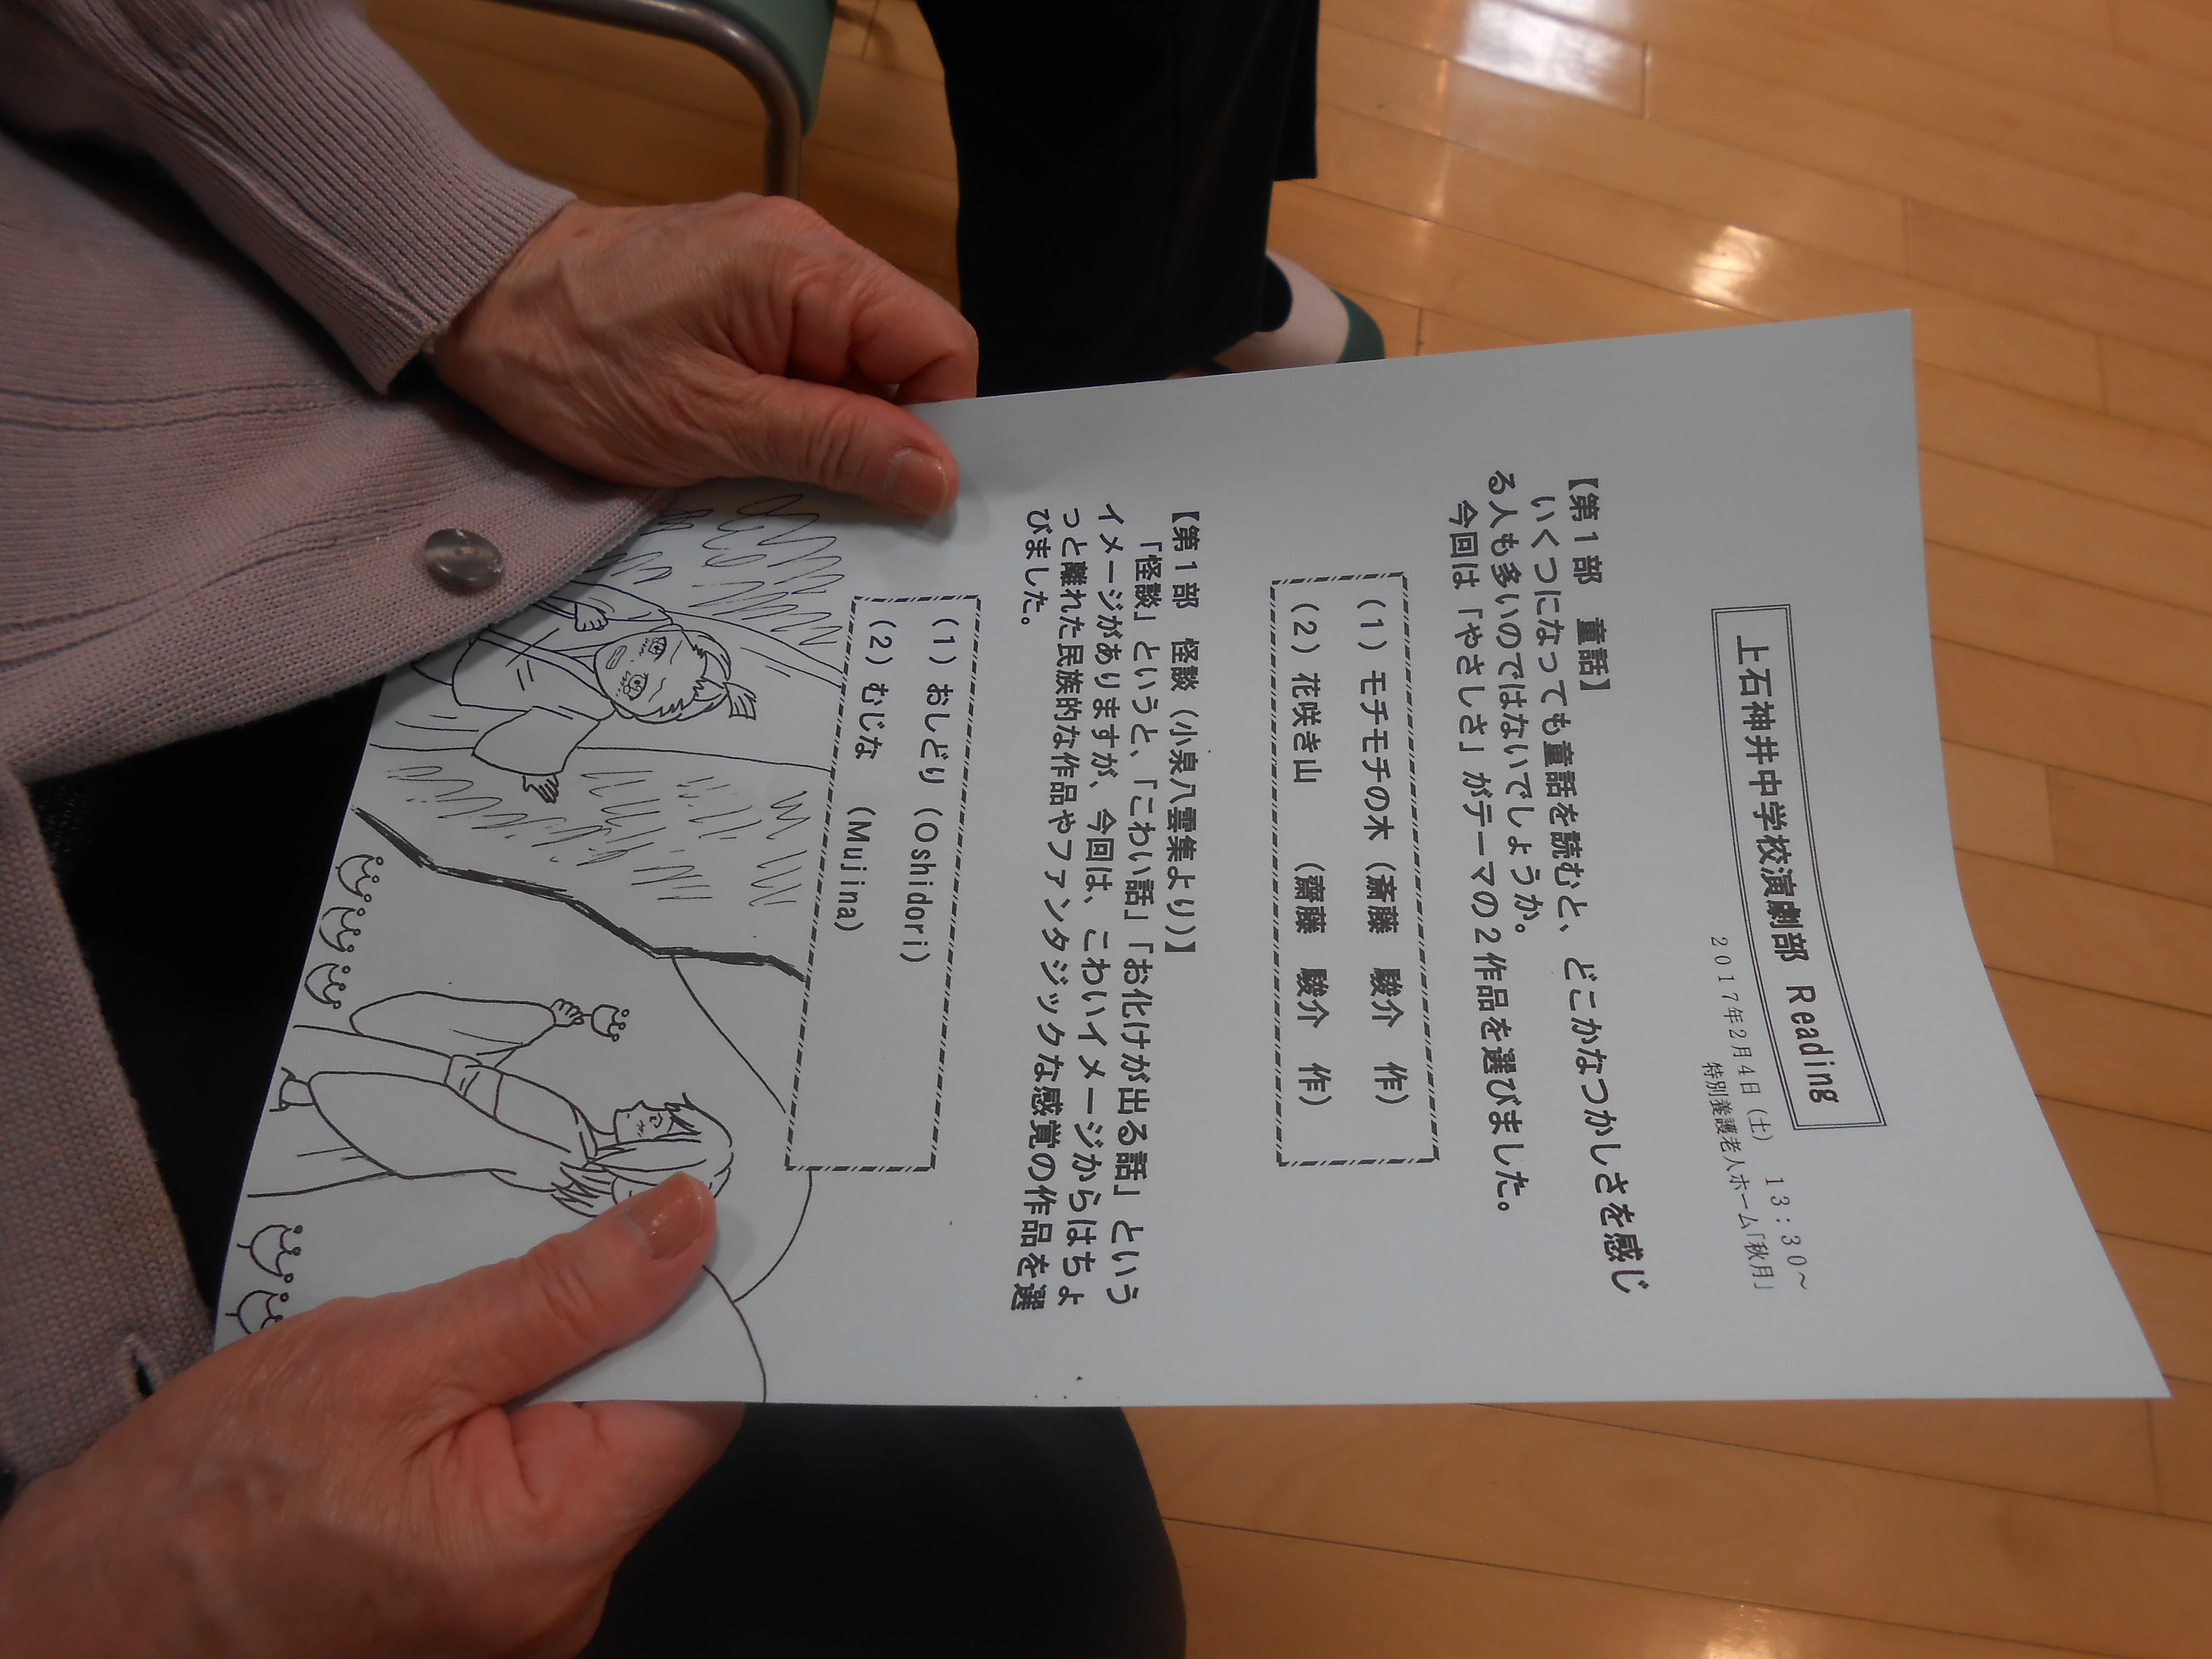 上石神井中学校演劇部 Reading
2017年2月4日(土) 13:30～
特別養護老人ホーム「秋月」
【第1部 童話】
いくつになっても童話を読むと、どこかなつかしさを感じ
る人も多いのではないでしょうか。
今回は「やさしさ」がテーマの2作品を選びました。
(1)モチモチの木(斎藤 駿介 作)
(2)花咲き山 (齋藤 駿介 作)
【第1部 怪談(小泉八雲集より)】
「怪談」というと、「こわい話」「お化けが出る話」という
イメージがありますが、今回は、こわいイメージからはちょ
っと離れた民族的な作品やファンタジックな感覚の作品を選
びました。
(1)おしどり(Oshidori)
(2)むじな (Mujina)